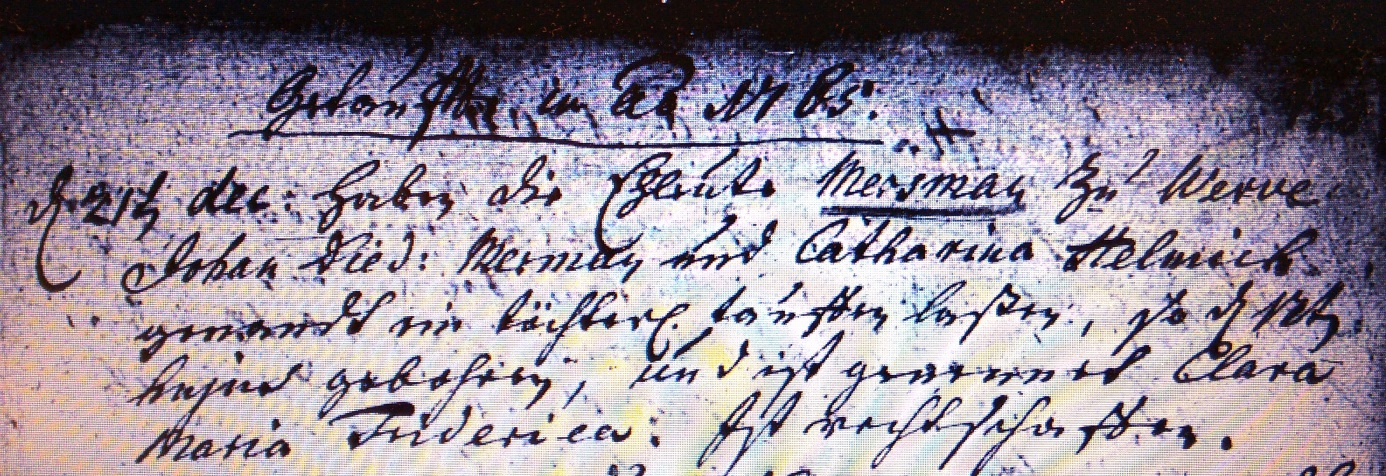 Getauffte, im
d. 21t dec: haben die Eheleute Mersman zu Werve
Johan Died: Merman und Catharina Helmich
genandt ein töchterl. tauffen laßen, so d. 18t
hujus gebohren, und ist genennet Clara
Maria Friderica: Ist rechtschaffen.